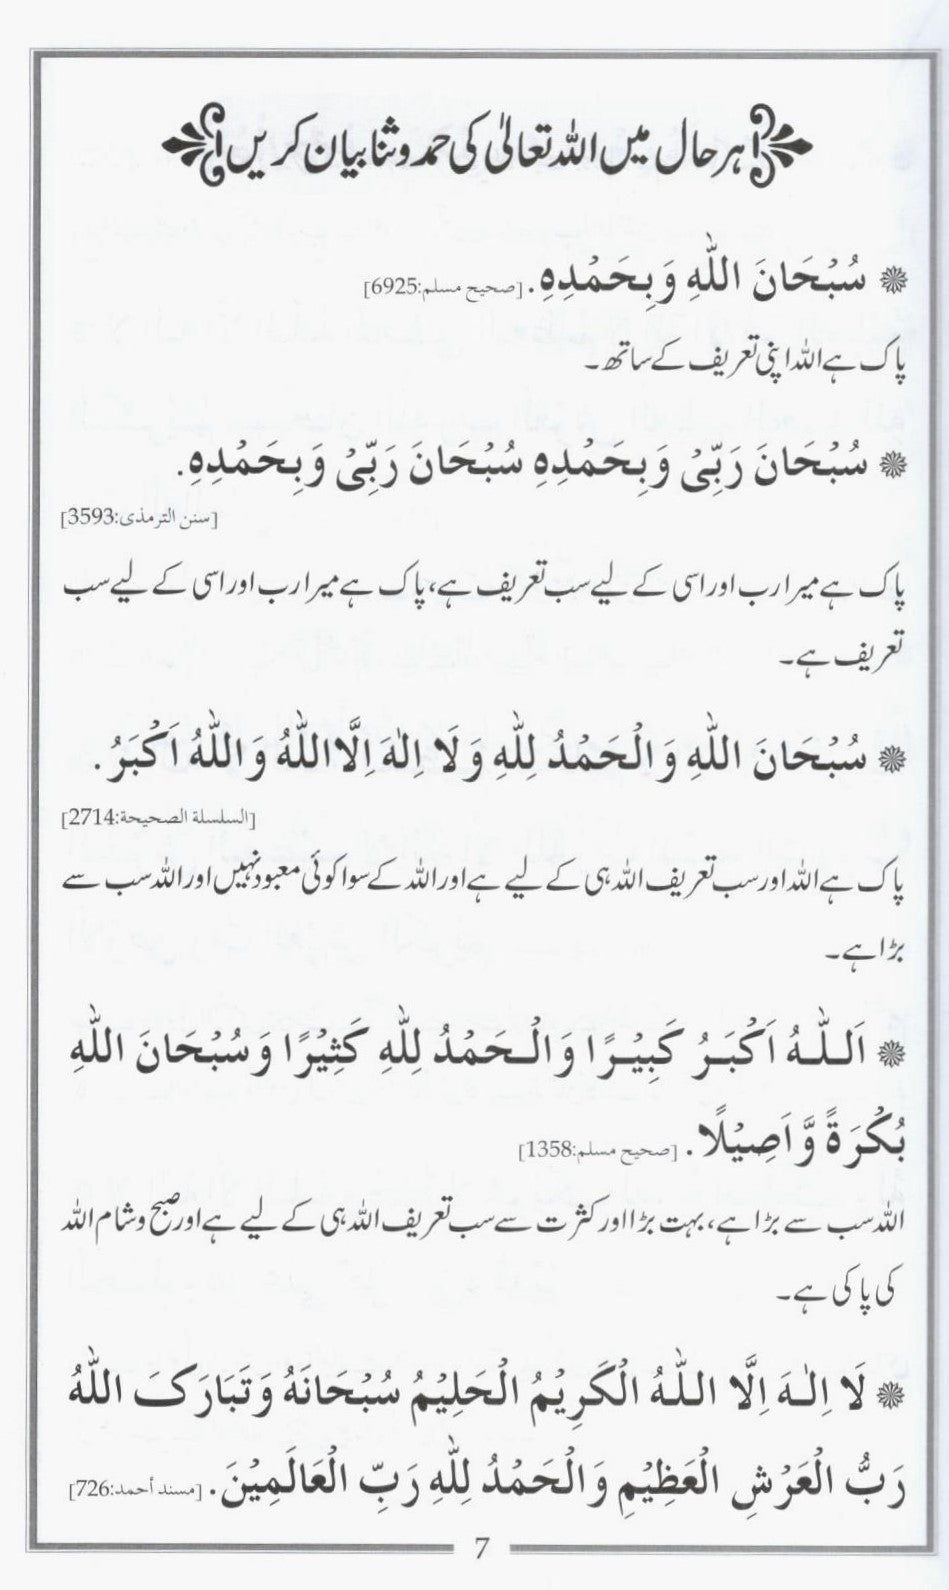 ہر حال میں اللہ تعالیٰ کی حمد و ثنا بیان کریں
سُبْحَانَ اللّٰهِ وَبِحَمْدِهِ. [صحیح مسلم:6925]
پاک ہے اللہ اپنی تعریف کے ساتھ۔
سُبْحَانَ رَبِّیْ وَبِحَمْدِهِ سُبْحَانَ رَبِّیْ وَبِحَمْدِهِ.
[سنن الترمذی:3593]
پاک ہے میرا رب اور اسی کے لیے سب تعریف ہے، پاک ہے میرا رب اور اسی کے لیے سب
تعریف ہے۔
سُبْحَانَ اللّٰهِ وَالْحَمْدُ لِلّٰهِ وَلَا اِلٰهَ اِلَّا اللّٰهُ وَاللّٰهُ اَکْبَرُ.
[السلسلة الصحيحة:2714]
پاک ہے اللہ اور سب تعریف اللہ ہی کے لیے ہے اور اللہ کے سوا کوئی معبود نہیں اور اللہ سب سے
بڑا ہے۔
اَللّٰهُ اَکْبَرُ کَبِیْرًا وَالْحَمْدُ لِلّٰهِ کَثِیْرًا وَسُبْحَانَ اللّٰهِ
بُکْرَةً وَّاَصِیْلًا. [صحیح مسلم:1358]
اللہ سب سے بڑا ہے، بہت بڑا اور کثرت سے سب تعریف اللہ ہی کے لیے ہے اور صبح و شام اللہ
کی پاکی ہے۔
لَا اِلٰهَ اِلَّا اللّٰهُ الْکَرِیْمُ الْحَلِیْمُ سُبْحَانَهُ وَتَبَارَکَ اللّٰهُ
رَبُّ الْعَرْشِ الْعَظِیْمِ وَالْحَمْدُ لِلّٰهِ رَبِّ الْعَالَمِیْنَ. [مسند أحمد:726]
7